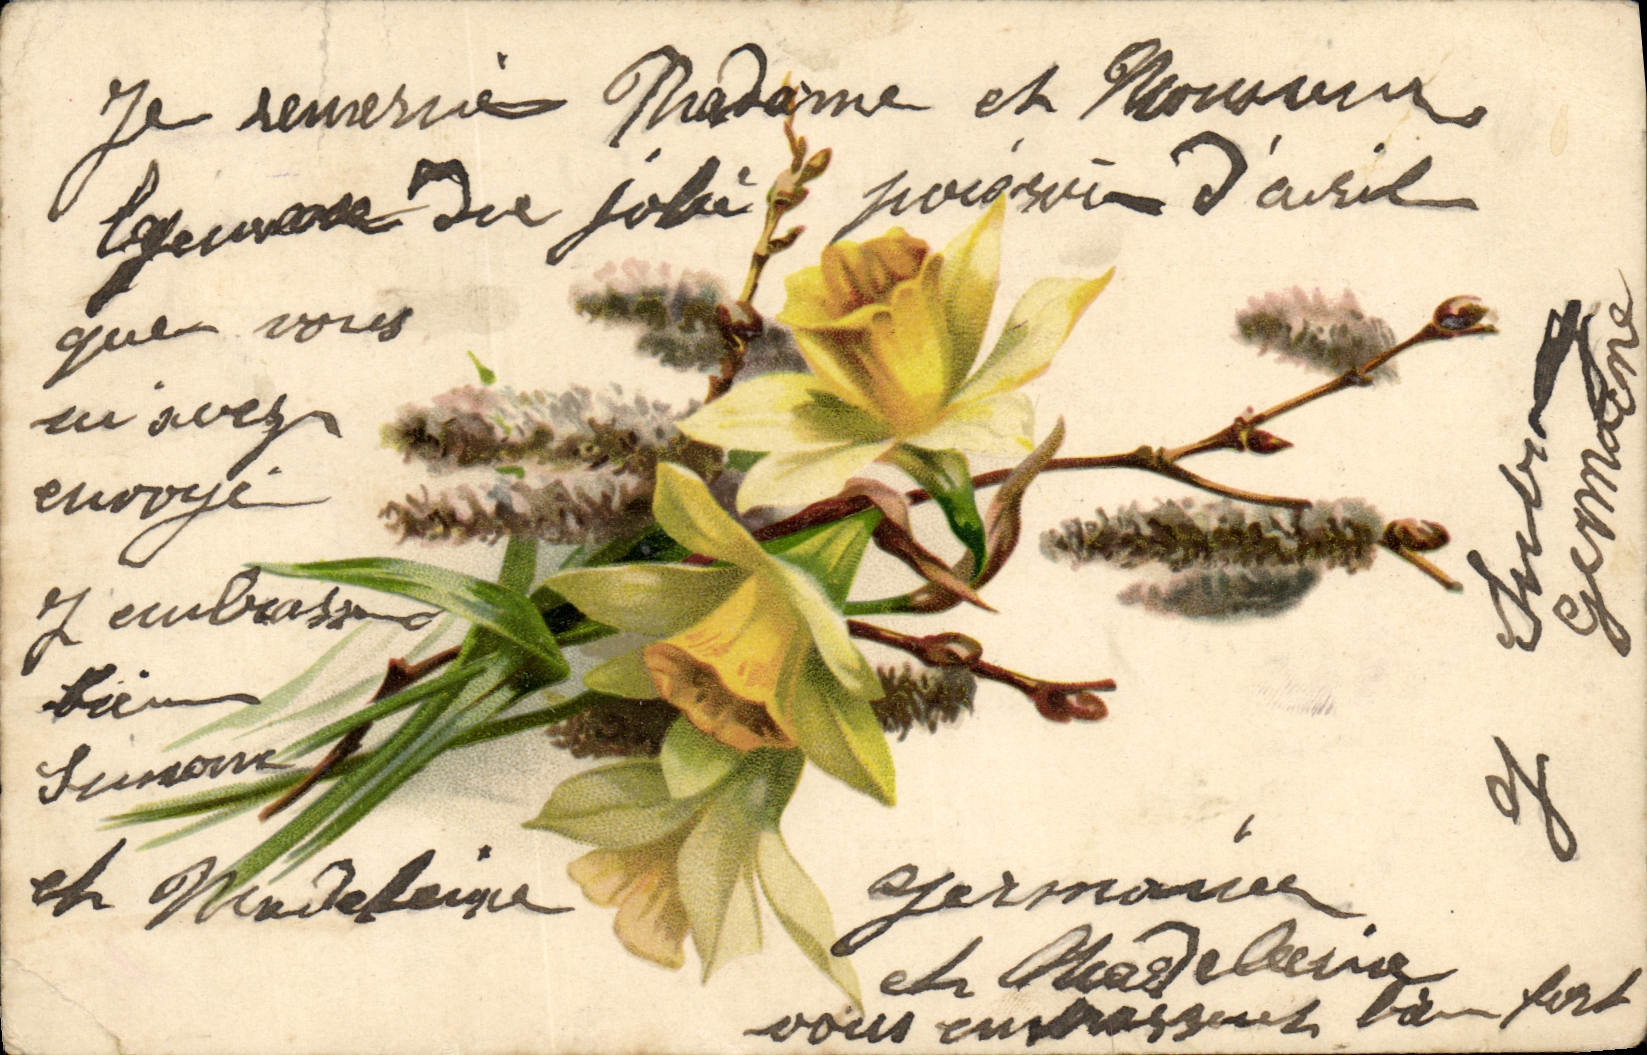 Je remercie Madame et Monsieur
du joli poisson d'avril
que vous
m'avez
envoyé
J embrasse
bien
Simone
et Madeleine
Germaine
et Madeleine
vous embrassent bien fort
J
Germaine